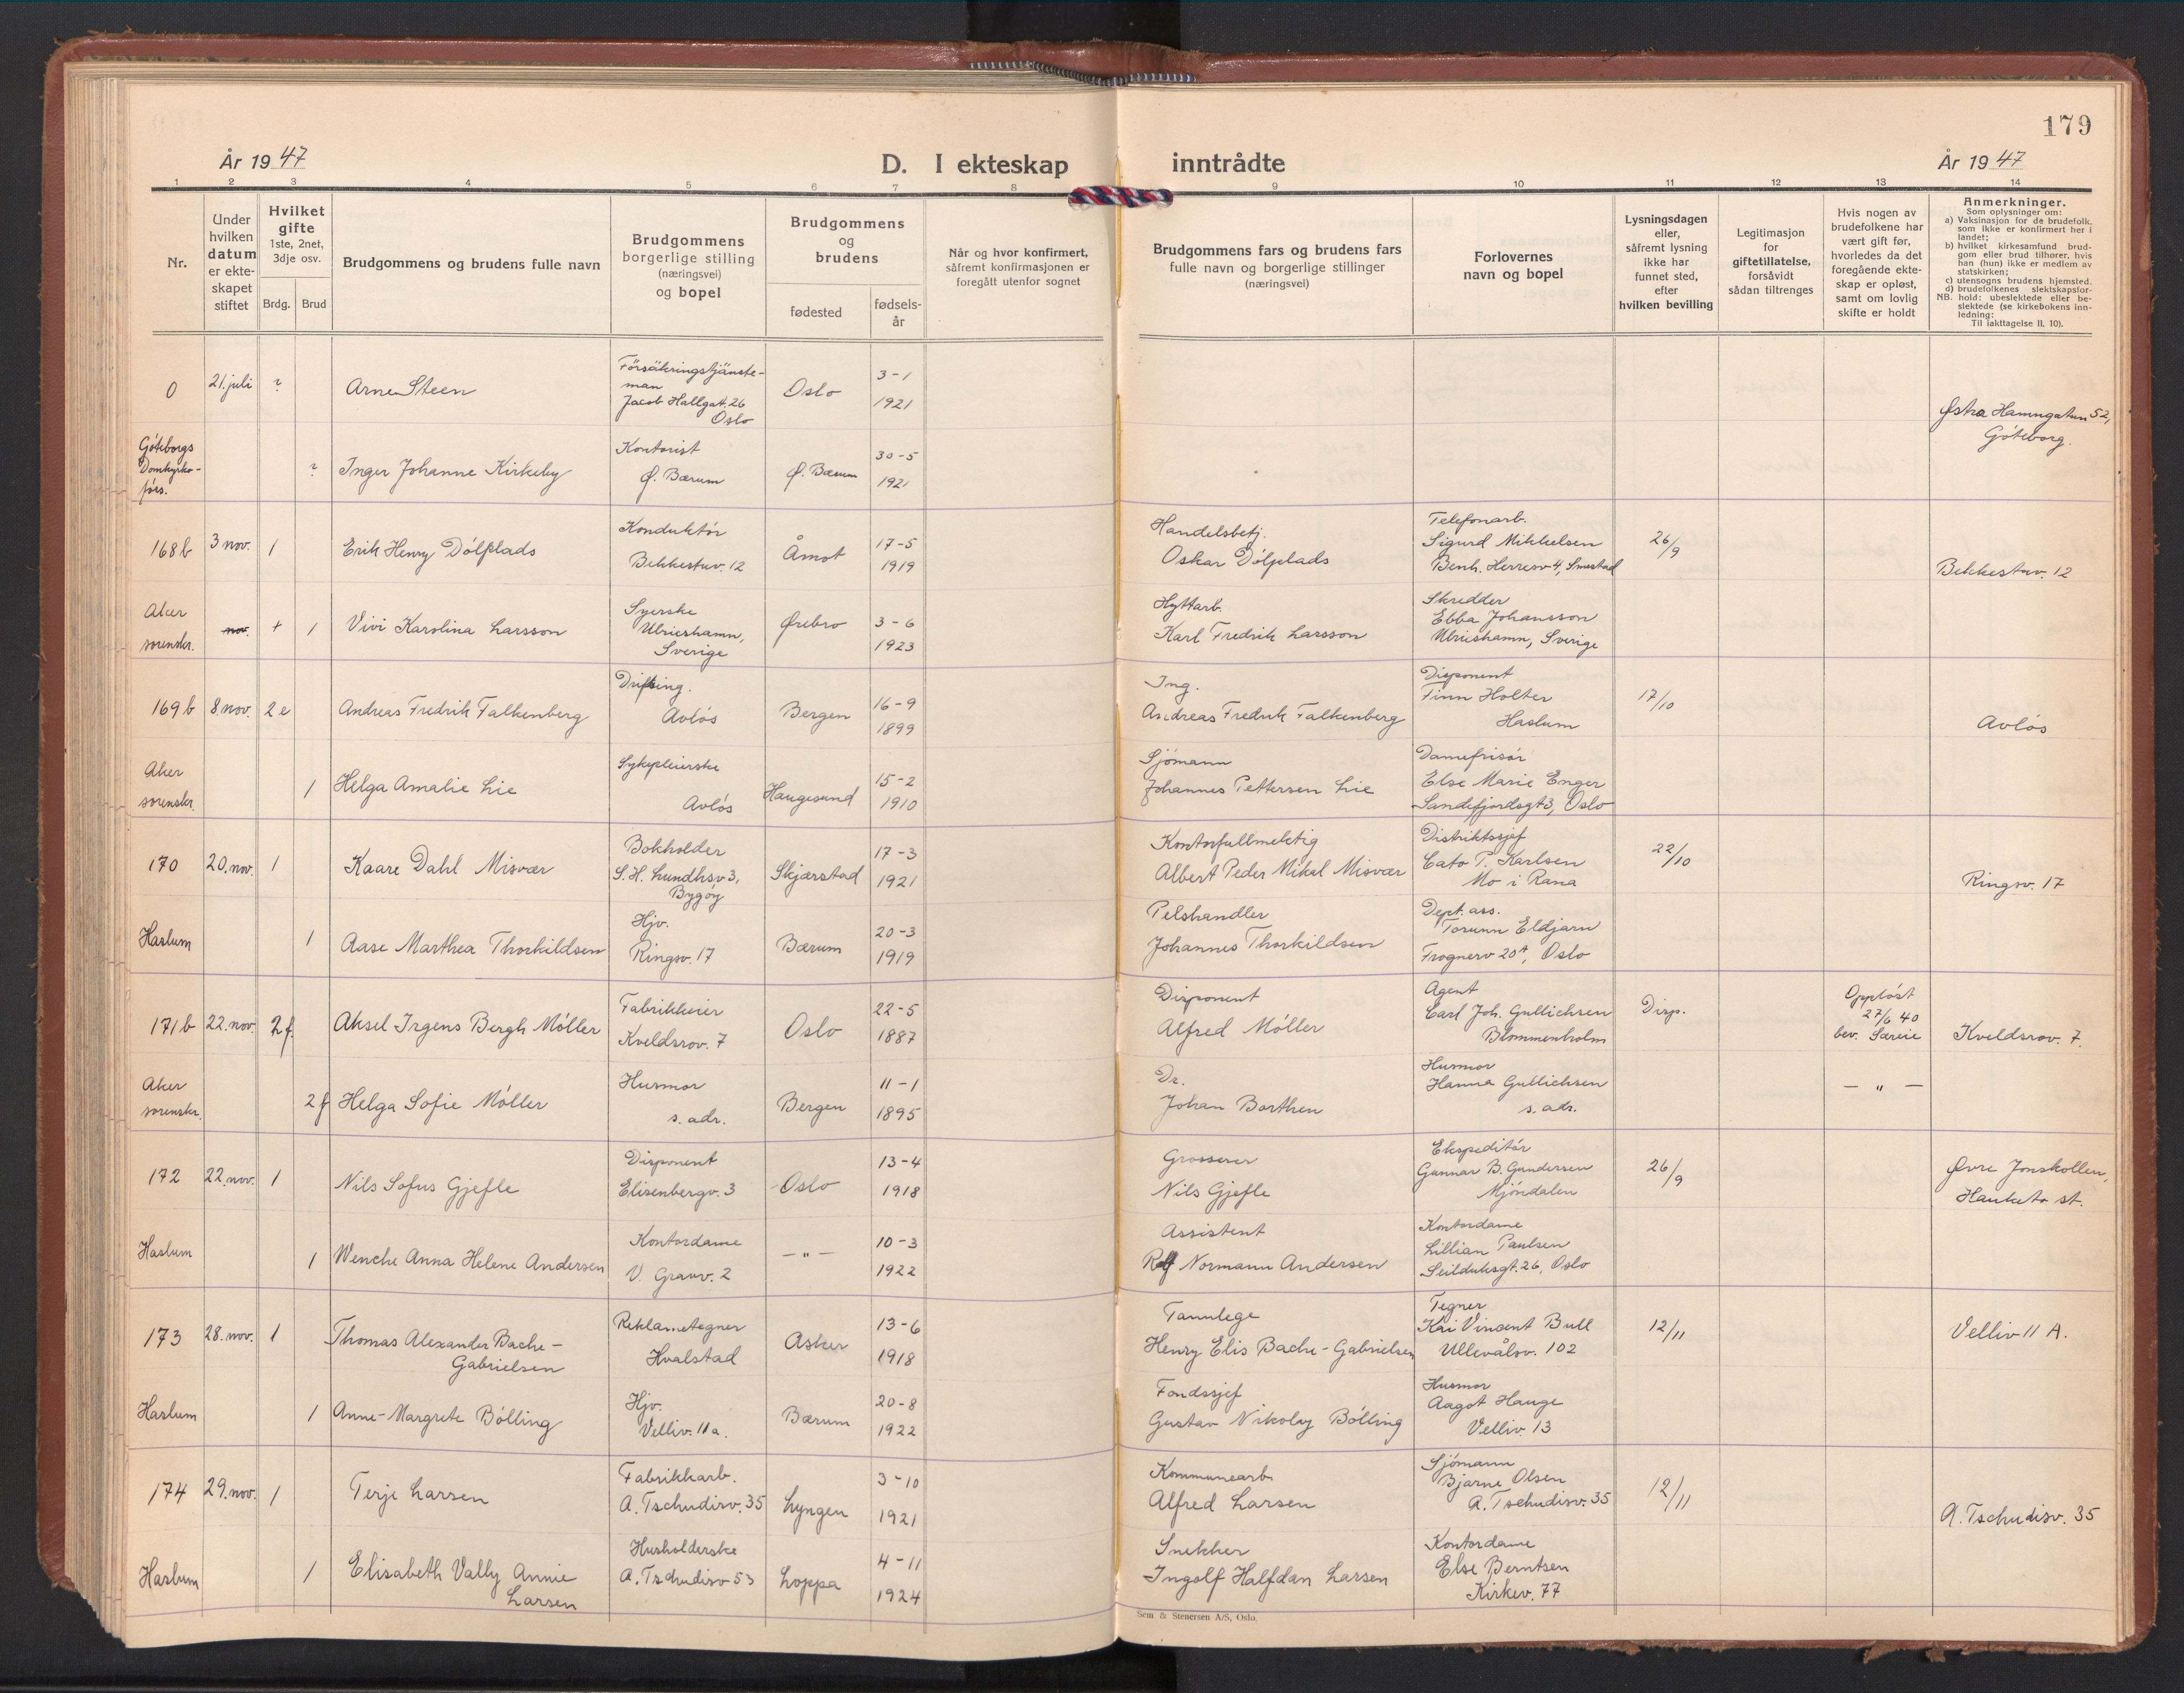 179
År 1947
D. I ekteskap inntrådte
År 1947
1 2 3 4 5 6 7 8 9 10 11 12 13 14
Nr.
Under hvilken datum er ekte-skapet stiftet
Hvilket gifte 1ste, 2net, 3dje osv.
Brdg. Brud
Brudgommens og brudens fulle navn
Brudgommens borgerlige stilling (næringsvei) og bopel
Brudgommens og brudens
fødested
fødsels-år
Når og hvor konfirmert,
såfremt konfirmasjonen er
foregått utenfor sognet
Brudgommens fars og brudens fars
fulle navn og borgerlige stillinger
(næringsvei)
Forlovernes
navn og bopel
Lysningsdagen
eller,
såfremt lysning
ikke har
funnet sted,
efter
hvilken bevilling
Legitimasjon
for
giftetillatelse,
forsåvidt
sådan tiltrenges
Hvis nogen av
brudefolkene har
vært gift før,
hvorledes da det
foregående ekte-
skap er opløst,
samt om lovlig
skifte er holdt
Anmerkninger.
Som oplysninger om:
a) Vaksinasjon for de brudefolk,
som ikke er konfirmert her i
landet;
b) hvilket kirkesamfund brud-
gom eller brud tilhører, hvis
han (hun) ikke er medlem av
statskirken;
c) utensogns brudens hjemsted.
d) brudefolkenes slektskapsfor-
NB. hold: ubeslektede eller be-
slektede (se kirkebokens inn-
ledning:
Til iakttagelse II. 10).
0 21. juli ? Arne Steen
Försäkringstjänste-
man
Jacob Hallsgat. 26
Oslo
Oslo 3-1 1921
Østra Hamngatan 52,
Göteborg.
Göteborgs
Domkyrko-
förs.
? Inger Johanne Kirkeby
Kontorist
Ø. Bærum
Ø. Bærum 30-5 1921
168b 3 nov. 1 Erik Henry Dölplads
Konduktör
Bekkestuv. 12
Åmot 17-5 1919
Handelsbetj.
Oskar Dölplads
Telefonarb.
Sigurd Mikkelsen
Benh. Herresv 4, Smestad
26/9
Bekkestuv. 12
Aker
sorenskr.
nov. + 1 Vivi Karolina Larsson
Syerske
Ulricehamn,
Sverige
Örebro 3-6 1923
Hyttarb.
Karl Fredrik Larsson
Skredder
Ebba Johansson
Ulricehamn, Sverige
169b 8. nov. 2e Andreas Fredrik Falkenberg
Driftsing.
Avlös
Bergen 16-9 1899
Ing.
Andreas Fredrik Falkenberg
Disponent
Finn Holter
Haslum
17/10
Avlös
Aker
sorenskr.
1 Helga Amalie Lie
Sykepleierske
Avlös
Haugesund 15-2 1910
Sjömann
Johannes Pettersen Lie
Damefrisör
Else Marie Enger
Sandefjordsgt 3, Oslo
170 20. nov. 1 Kaare Dahl Misvær
Bokholder
S. H. Lundhsv 3,
Bygöy
Skjærstad 17-3 1921
Kontorfullmektig
Albert Peder Mikal Misvær
Distriktssjef
Cato P. Karlsen
Mo i Rana
22/10
Ringsv. 17
Haslum
1 Aase Marthea Thorkildsen
Hjv.
Ringsv. 17
Bærum 20-3 1919
Pelshandler
Johannes Thorkildsen
Dept. ass.
Torunn Eldjarn
Frognerv 20A, Oslo
171b 22. nov. 2f. Aksel Irgens Bergh Möller
Fabrikkeier
Kveldsrov. 7
Oslo 22-5 1887
Disponent
Alfred Möller
Agent
Carl Joh. Gullichsen
Blommenholm
Disp.
Opplöst
27/6 40
bev. Særeie
Kveldsrov. 7.
Aker
sorenskr.
2f Helga Sofie Möller
Husmor
s. adr.
Bergen 11-1 1895
Dr.
Johan Borthen
Husmor
Hanna Gullichsen
s. adr.
— " —
172 22. nov. 1 Nils Sofus Gjefle
Disponent
Elisenbergv. 3
Oslo 13-4 1918
Grosserer
Nils Gjefle
Ekspeditör
Gunnar B. Gundersen
Mjöndalen
26/9
Øvre Jonskollen,
Hauketo st.
Haslum
1 Wenche Anna Helene Andersen
Kontordame
V. Gravv. 2
— " — 10-3 1922
Assistent
Rolf Normann Andersen
Kontordame
Lillian Paulsen
Seilduksgt. 26, Oslo
173 28. nov. 1 Thomas Alexander Bache-
Gabrielsen
Reklametegner
Hvalstad
Asker 13-6 1918
Tannlege
Henry Elis Bache-Gabrielsen
Tegner
Kai Vincent Bull
Ullevålsv. 102
12/11
Velliv 11 A.
Haslum
1 Anne-Margrete Bölling
Hjv.
Velliv. 11a.
Bærum 20-8 1922
Fondssjef
Gustav Nikolay Bölling
Husmor
Aagot Hauge
Velliv. 13
174 29. nov. 1 Terje Larsen
Fabrikkarb.
A. Tschudisv. 35
Lyngen 3-10 1921
Kommunearb.
Alfred Larsen
Sjömann
Bjarne Olsen
A. Tschudisv. 35
12/11
A. Tschudisv. 35
Haslum
1 Elisabeth Vally Annie
Larsen
Husholderske
A. Tschudisv 53
Loppa 4-11 1924
Snekker
Ingolf Halfdan Larsen
Kontordame
Else Berntsen
Kirkev. 77
Sem & Stenersen A/S, Oslo.